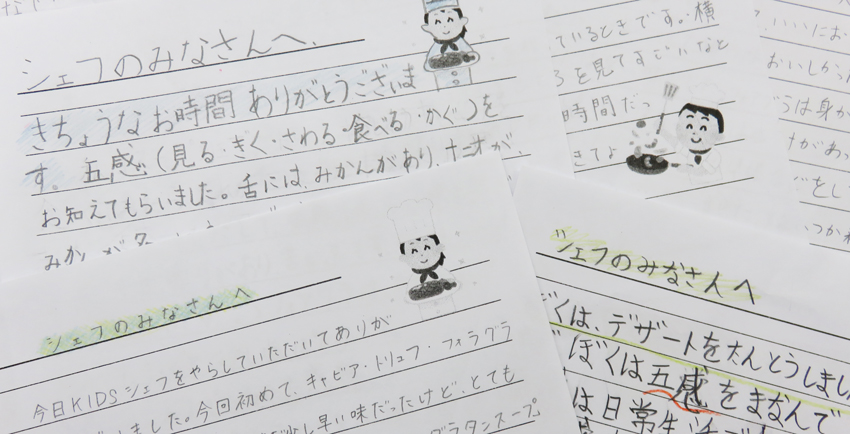 シェフのみなさんへ、
きちょうなお時間ありがとうございま
す。五感(見る・きく・さわる・食べる・かぐ)を
お知えてもらいました。舌には、みかんがあり、
シェフのみなさんへ
今日KIDSシェフをやらしていただいてありが
ました。今回初めて、キャビア・トリュフ・フォラグラ
少し早い味だったけど、とても
グラタンスープ
ているときです。横
を見てすごいなと
時間だっ
きてよ
いいにお
おいしかっ
は身か
があっ
をし
つかれ
シェフのみなさんへ
ぼくは、デザートをたんとうしまし
ぼくは五感をまなんで
は日常生